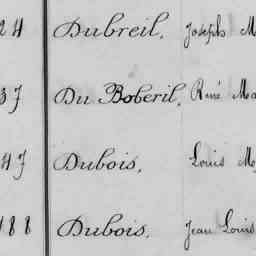 24 Dubreil, Joseph M
37 Du Boberil, René Ma
47 Dubois, Louis M
188 Dubois, Jean Louis